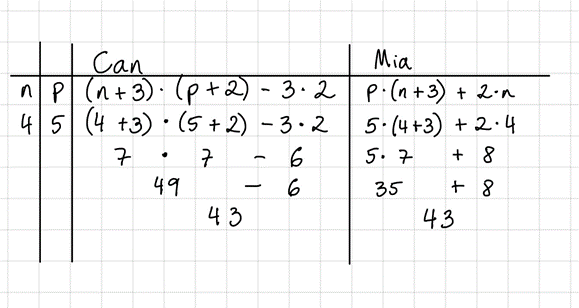 Can Mia
n p (n+3) · (p+2) - 3·2 p·(n+3) + 2·n
4 5 (4+3) · (5+2) - 3·2 5·(4+3) + 2·4
7 · 7 - 6 5·7 + 8
49 - 6 35 + 8
43 43